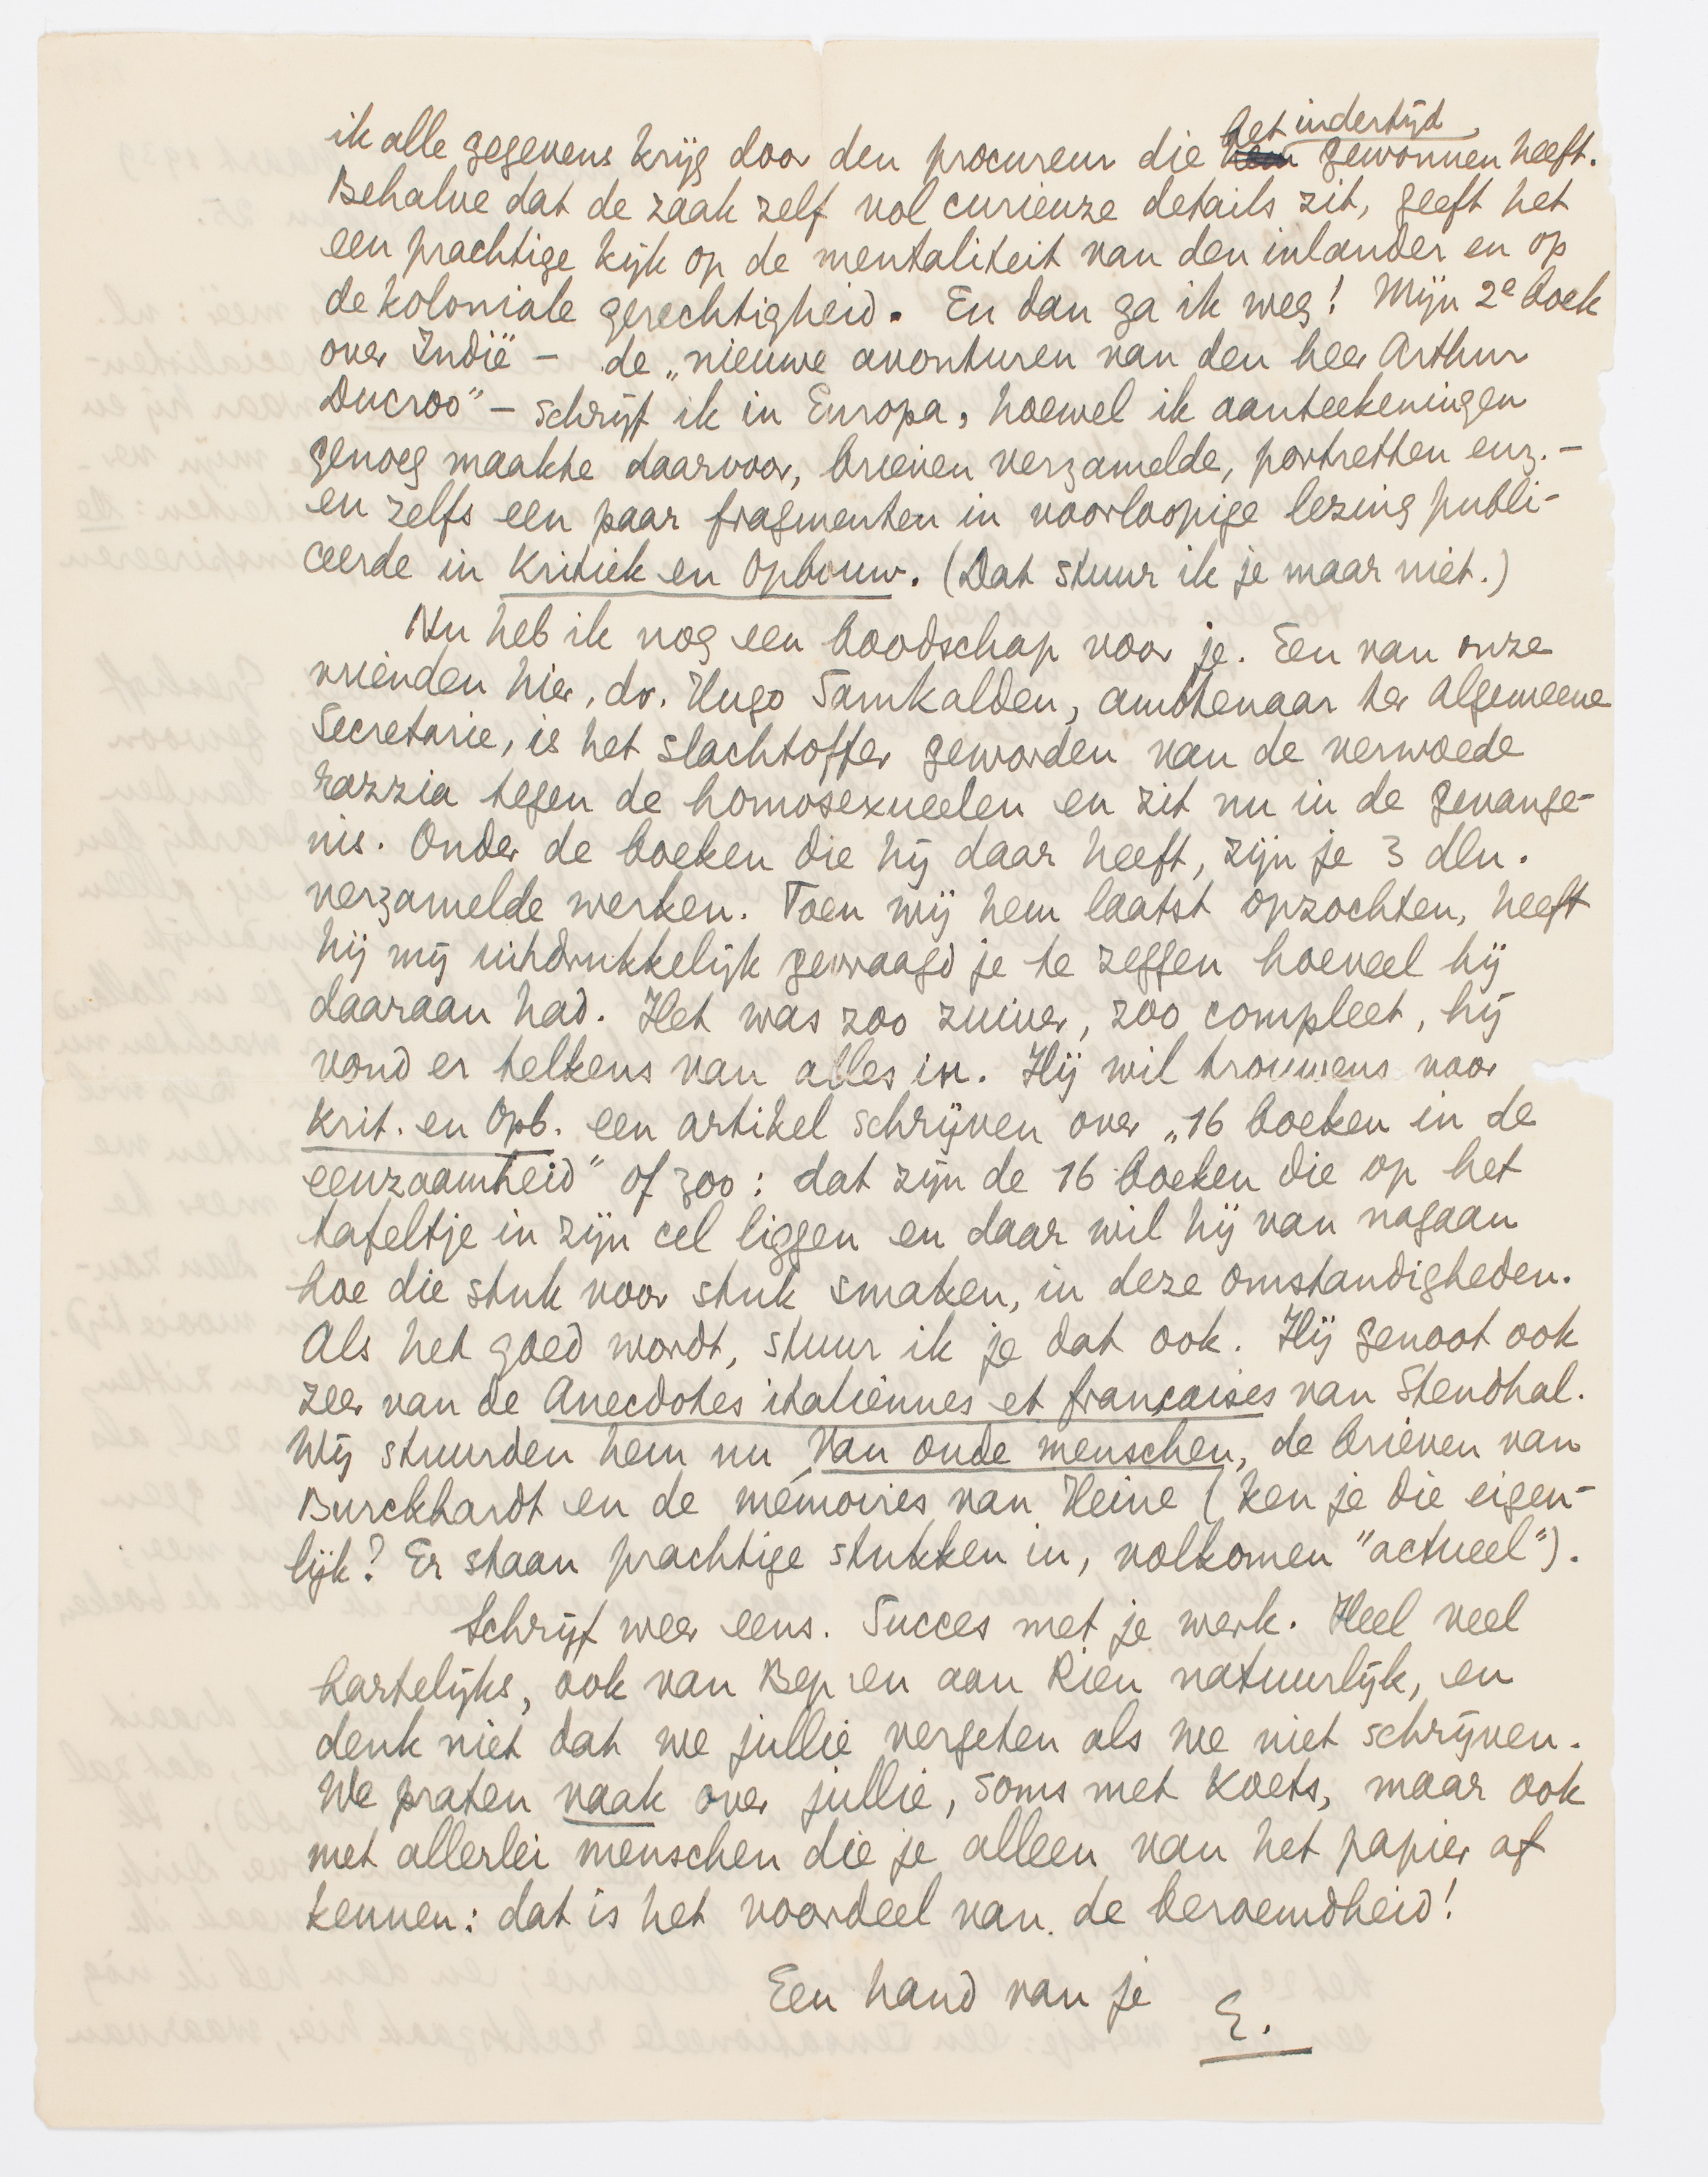 ik alle gegevens krijg door den procureur die het indertijd gewonnen heeft.
Behalve dat de zaak zelf vol curieuze details zit, geeft het
een prachtige kijk op de mentaliteit van den inlander en op
de koloniale gerechtigheid. En dan ga ik weg! Mijn 2e boek
over Indië – de „nieuwe avonturen van den heer Arthur
Ducroo" – schrijf ik in Europa, hoewel ik aanteekeningen
genoeg maakte daarvoor, brieven verzamelde, portretten enz. –
en zelfs een paar fragmenten in voorloopige lezing publi-
ceerde in Kritiek en Opbouw. (Dat stuur ik je maar niet.)
Nu heb ik nog een boodschap voor je. Een van onze
vrienden hier, dr. Hugo Samkalden, ambtenaar ter Algemeene
Secretarie, is het slachtoffer geworden van de verwoede
razzia tegen de homosexueelen en zit nu in de gevange-
nis. Onder de boeken die hij daar heeft, zijn je 3 dln.
verzamelde werken. Toen wij hem laatst opzochten, heeft
hij mij uitdrukkelijk gevraagd je te zeggen hoeveel hij
daaraan had. Het was zoo zuiver, zoo compleet, hij
vond er telkens van alles in. Hij wil trouwens voor
Krit. en Opb. een artikel schrijven over „16 boeken in de
eenzaamheid" of zoo: dat zijn de 16 boeken die op het
tafeltje in zijn cel liggen en daar wil hij van nagaan
hoe die stuk voor stuk smaken, in deze omstandigheden.
Als het goed wordt, stuur ik je dat ook. Hij genoot ook
zeer van de Anecdotes italiennes et françaises van Stendhal.
Wij stuurden hem nu Van oude menschen, de brieven van
Burckhardt en de mémoires van Heine (ken je die eigen-
lijk? Er staan prachtige stukken in, volkomen "actueel").
Schrijf weer eens. Succes met je werk. Heel veel
hartelijks, ook van Bep en aan Rien natuurlijk, en
denk niet dat we jullie vergeten als we niet schrijven.
We praten vaak over jullie, soms met Koets, maar ook
met allerlei menschen die je alleen van het papier af
kennen: dat is het voordeel van de beroemdheid!
Een hand van je
E.